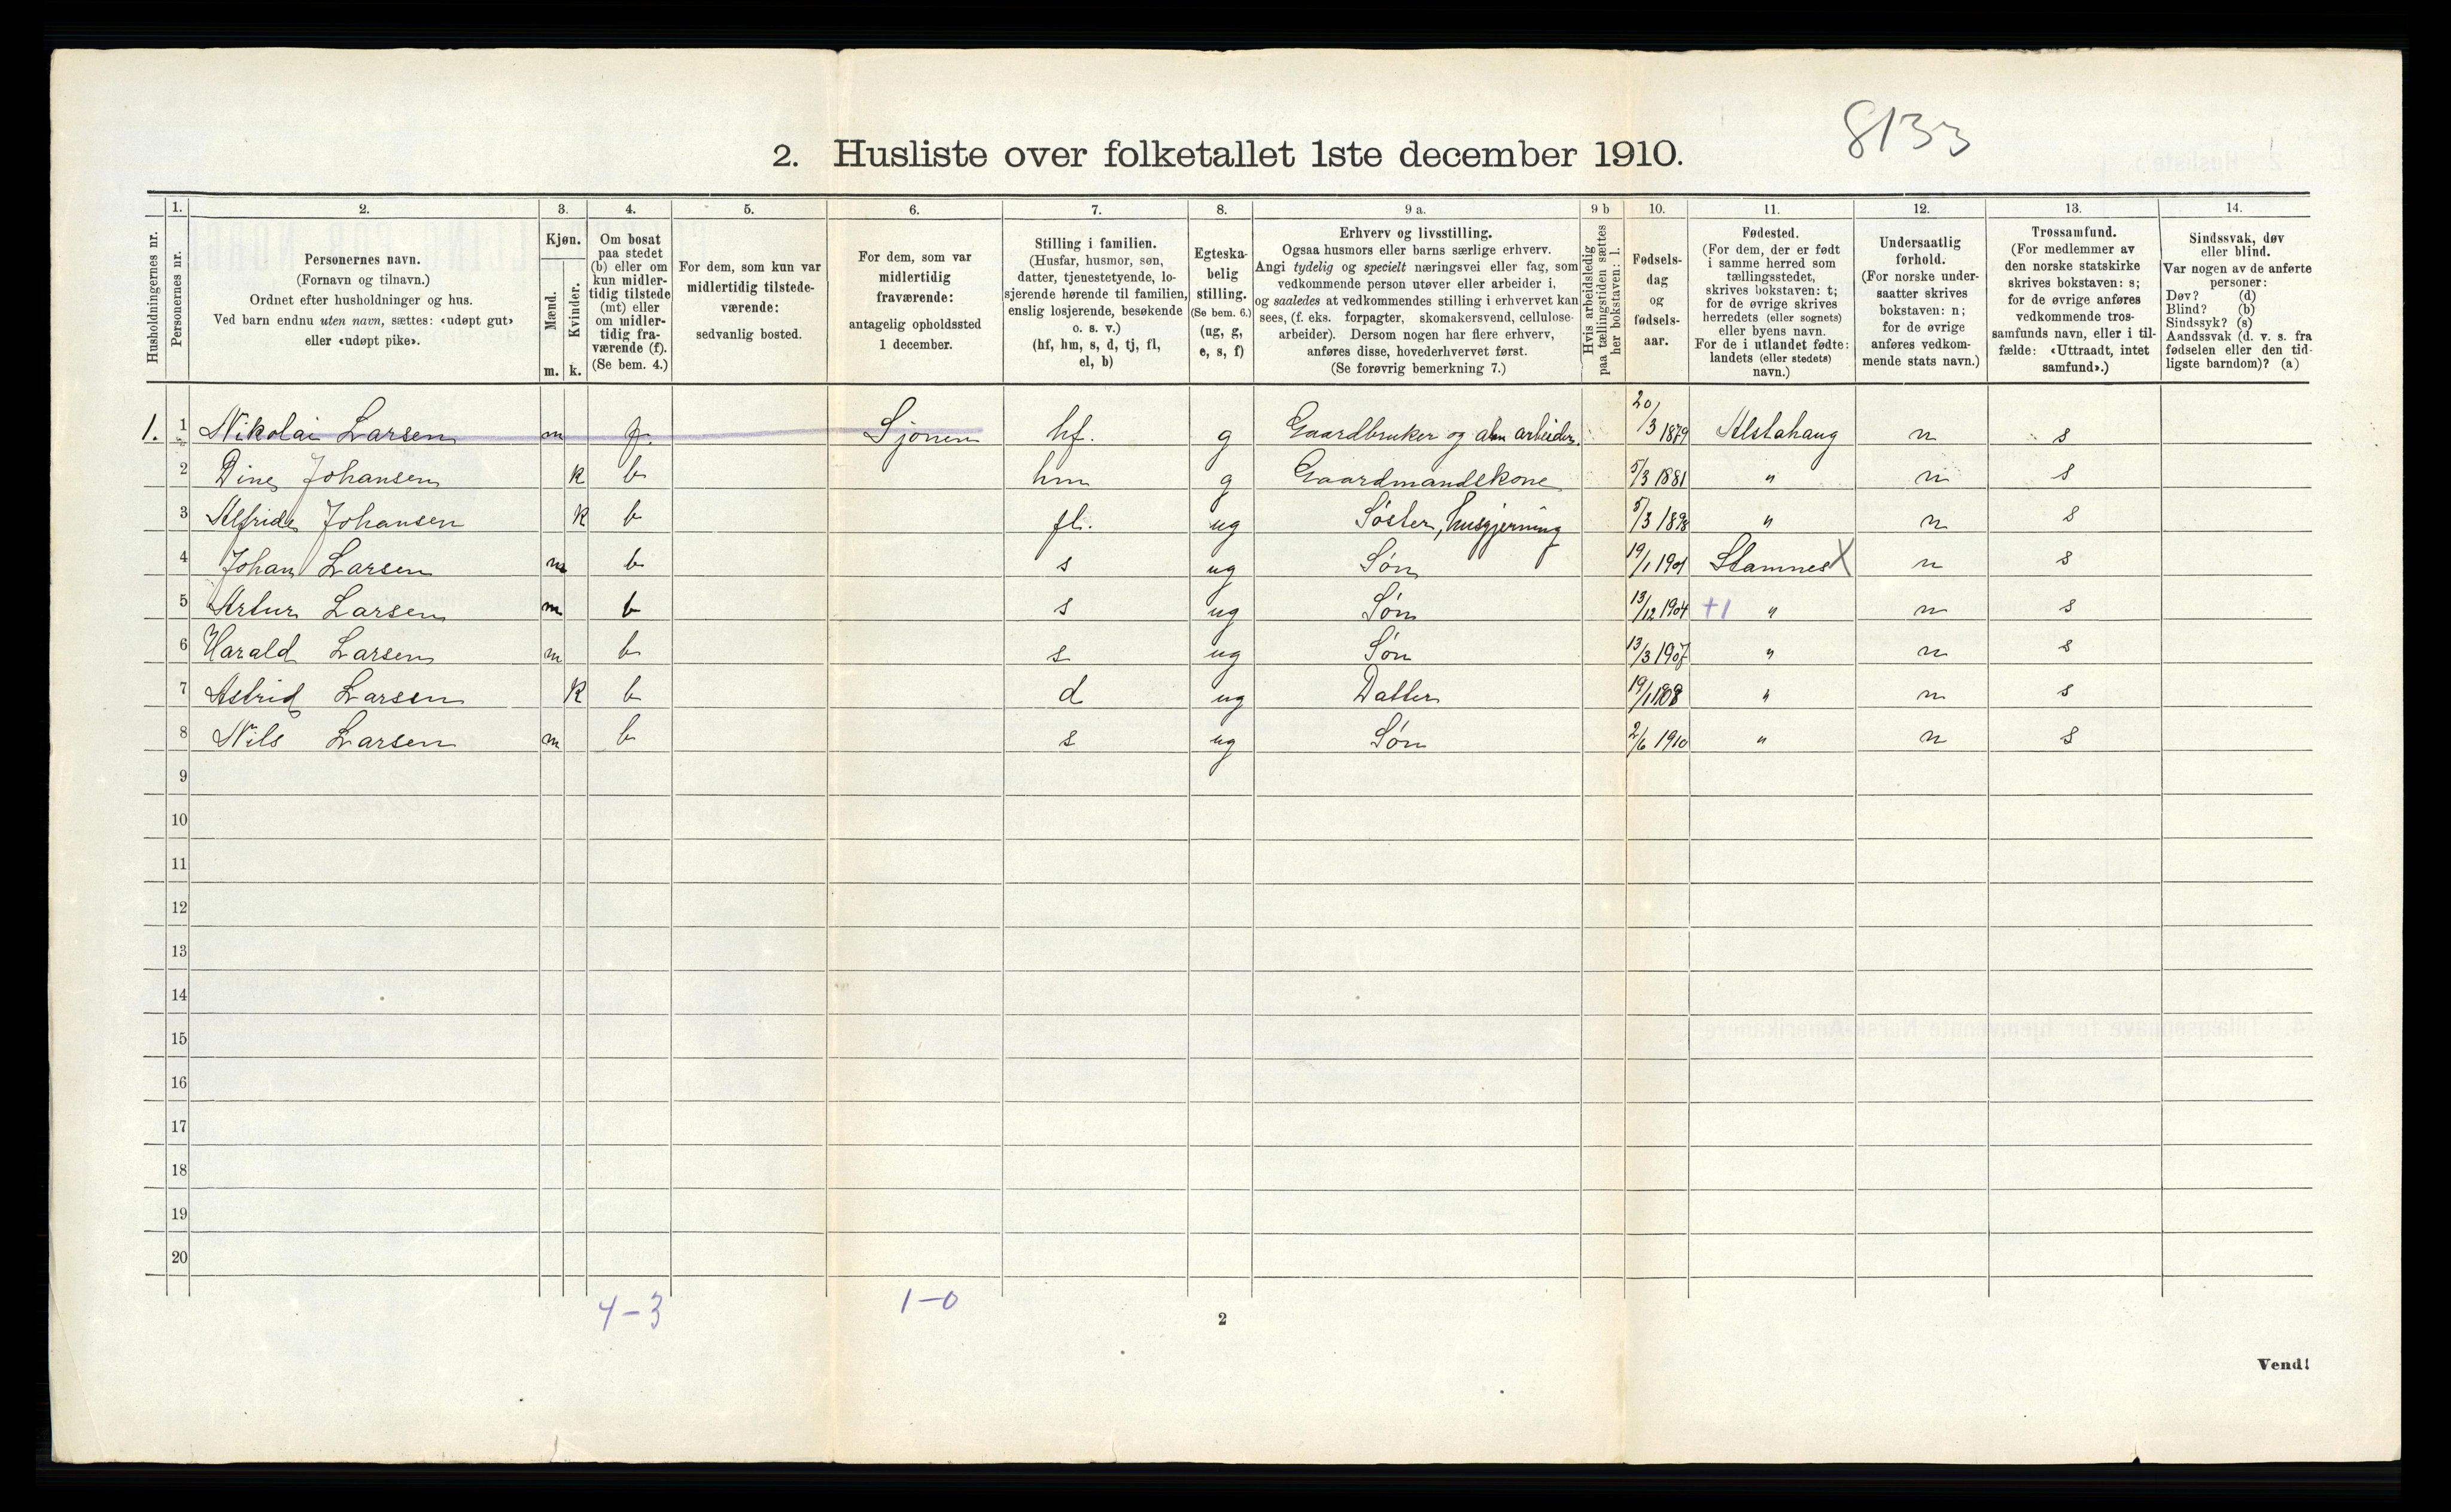 8133
2. Husliste over folketallet 1ste december 1910.
1. 2. 3. 4. 5. 6. 7. 8. 9 a. 9 b 10. 11. 12. 13. 14.
Husholdningernes nr.
Personernes nr.
Personernes navn.
(Fornavn og tilnavn.)
Ordnet efter husholdninger og hus.
Ved barn endnu uten navn, sættes: «udøpt gut»
eller «udøpt pike».
Kjøn.
Mænd.
Kvinder.
m. k.
Om bosat
paa stedet
(b) eller om
kun midler-
tidig tilstede
(mt) eller
om midler-
tidig fra-
værende (f).
(Se bem. 4.)
For dem, som kun var
midlertidig tilstede-
værende:
sedvanlig bosted.
For dem, som var
midlertidig
fraværende:
antagelig opholdssted
1 december.
Stilling i familien.
(Husfar, husmor, søn,
datter, tjenestetyende, lo-
sjerende hørende til familien,
enslig losjerende, besøkende
o. s. v.)
(hf, hm, s, d, tj, fl,
el, b)
Egteska-
belig
stilling.
(Se bem. 6.)
(ug, g,
e, s, f)
Erhverv og livsstilling.
Ogsaa husmors eller barns særlige erhverv.
Angi tydelig og specielt næringsvei eller fag, som
vedkommende person utøver eller arbeider i,
og saaledes at vedkommendes stilling i erhvervet kan
sees, (f. eks. forpagter, skomakersvend, cellulose-
arbeider). Dersom nogen har flere erhverv,
anføres disse, hovederhvervet først.
(Se forøvrig bemerkning 7.)
Hvis arbeidsledig
paa tællingstiden sættes
her bokstaven: l.
Fødsels-
dag
og
fødsels-
aar.
Fødested.
(For dem, der er født
i samme herred som
tællingsstedet,
skrives bokstaven: t;
for de øvrige skrives
herredets (eller sognets)
eller byens navn.
For de i utlandet fødte:
landets (eller stedets)
navn.)
Undersaatlig
forhold.
(For norske under-
saatter skrives
bokstaven: n;
for de øvrige
anføres vedkom-
mende stats navn.)
Trossamfund.
(For medlemmer av
den norske statskirke
skrives bokstaven: s;
for de øvrige anføres
vedkommende tros-
samfunds navn, eller i til-
fælde: «Uttraadt, intet
samfund».)
Sindssvak, døv
eller blind.
Var nogen av de anførte
personer:
Døv? (d)
Blind? (b)
Sindssyk? (s)
Aandssvak (d. v. s. fra
fødselen eller den tid-
ligste barndom)? (a)
1. 1 Nikolai Larsen m f. Sjonen hf. g Gaardbruker og alm arbeider. 20/3 1879 Alstahaug n s
2 Dine Johansen k b hm g Gaardmandskone 5/3 1881 " n s
3 Alfride Johansen k b fl. ug Søster, husgjerning 5/3 1898 " n s
4 Johan Larsen m b s ug Søn 19/1 1901 Stamnes X n s
5 Artur Larsen m b s ug Søn 13/12 1904 +1 " n s
6 Harald Larsen m b s ug Søn 13/3 1907 " n s
7 Astrid Larsen k b d ug Datter 19/1 1908 " n s
8 Nils Larsen m b s ug Søn 2/6 1910 " n s
9
10
11
12
13
14
15
16
17
18
19
20
4-3 1-0
2
Vend!